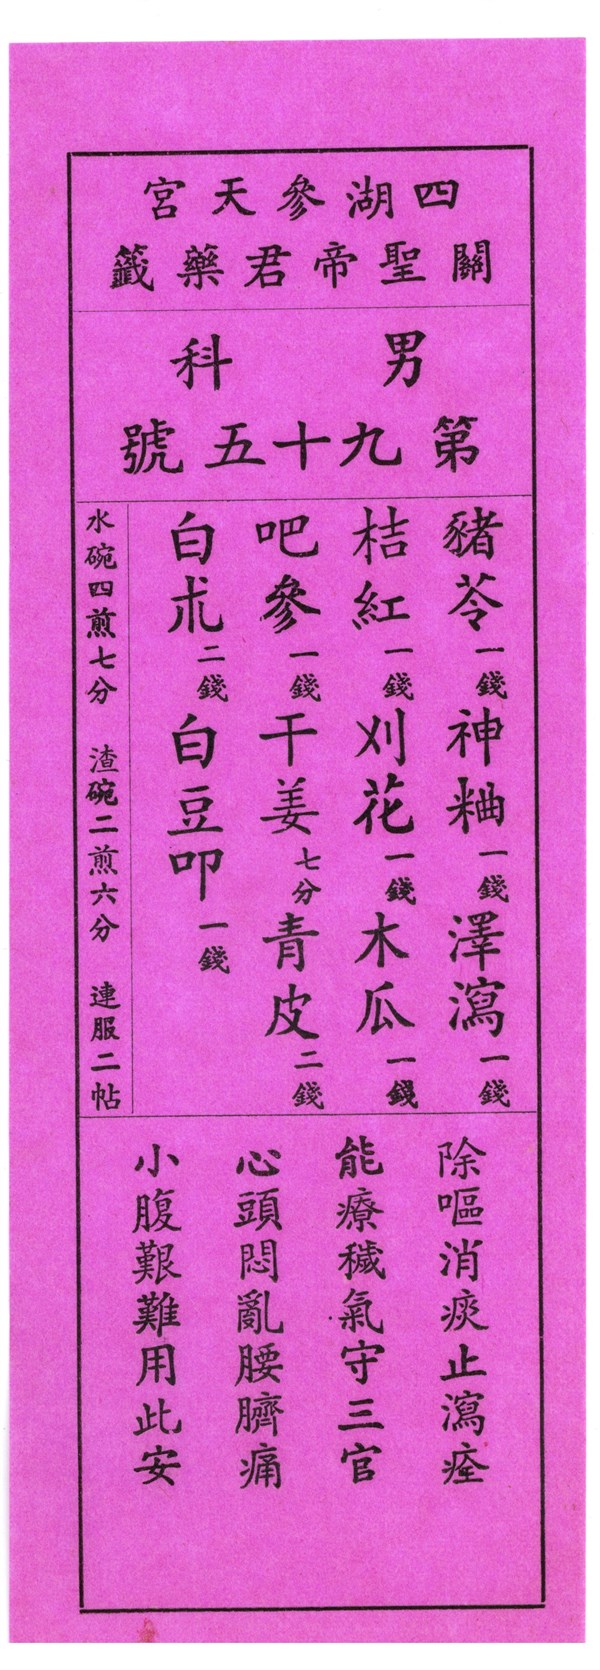 四湖參天宮
關聖帝君藥籤
男科
第九十五號
豬苓一錢 神粬一錢 澤瀉一錢
桔紅一錢 刈花一錢 木瓜一錢
吧參一錢 干姜七分 青皮二錢
白朮二錢 白豆叩一錢
水碗四煎七分 渣碗二煎六分 連服二帖
除嘔消痰止瀉痊
能療穢氣守三官
心頭悶亂腰臍痛
小腹艱難用此安